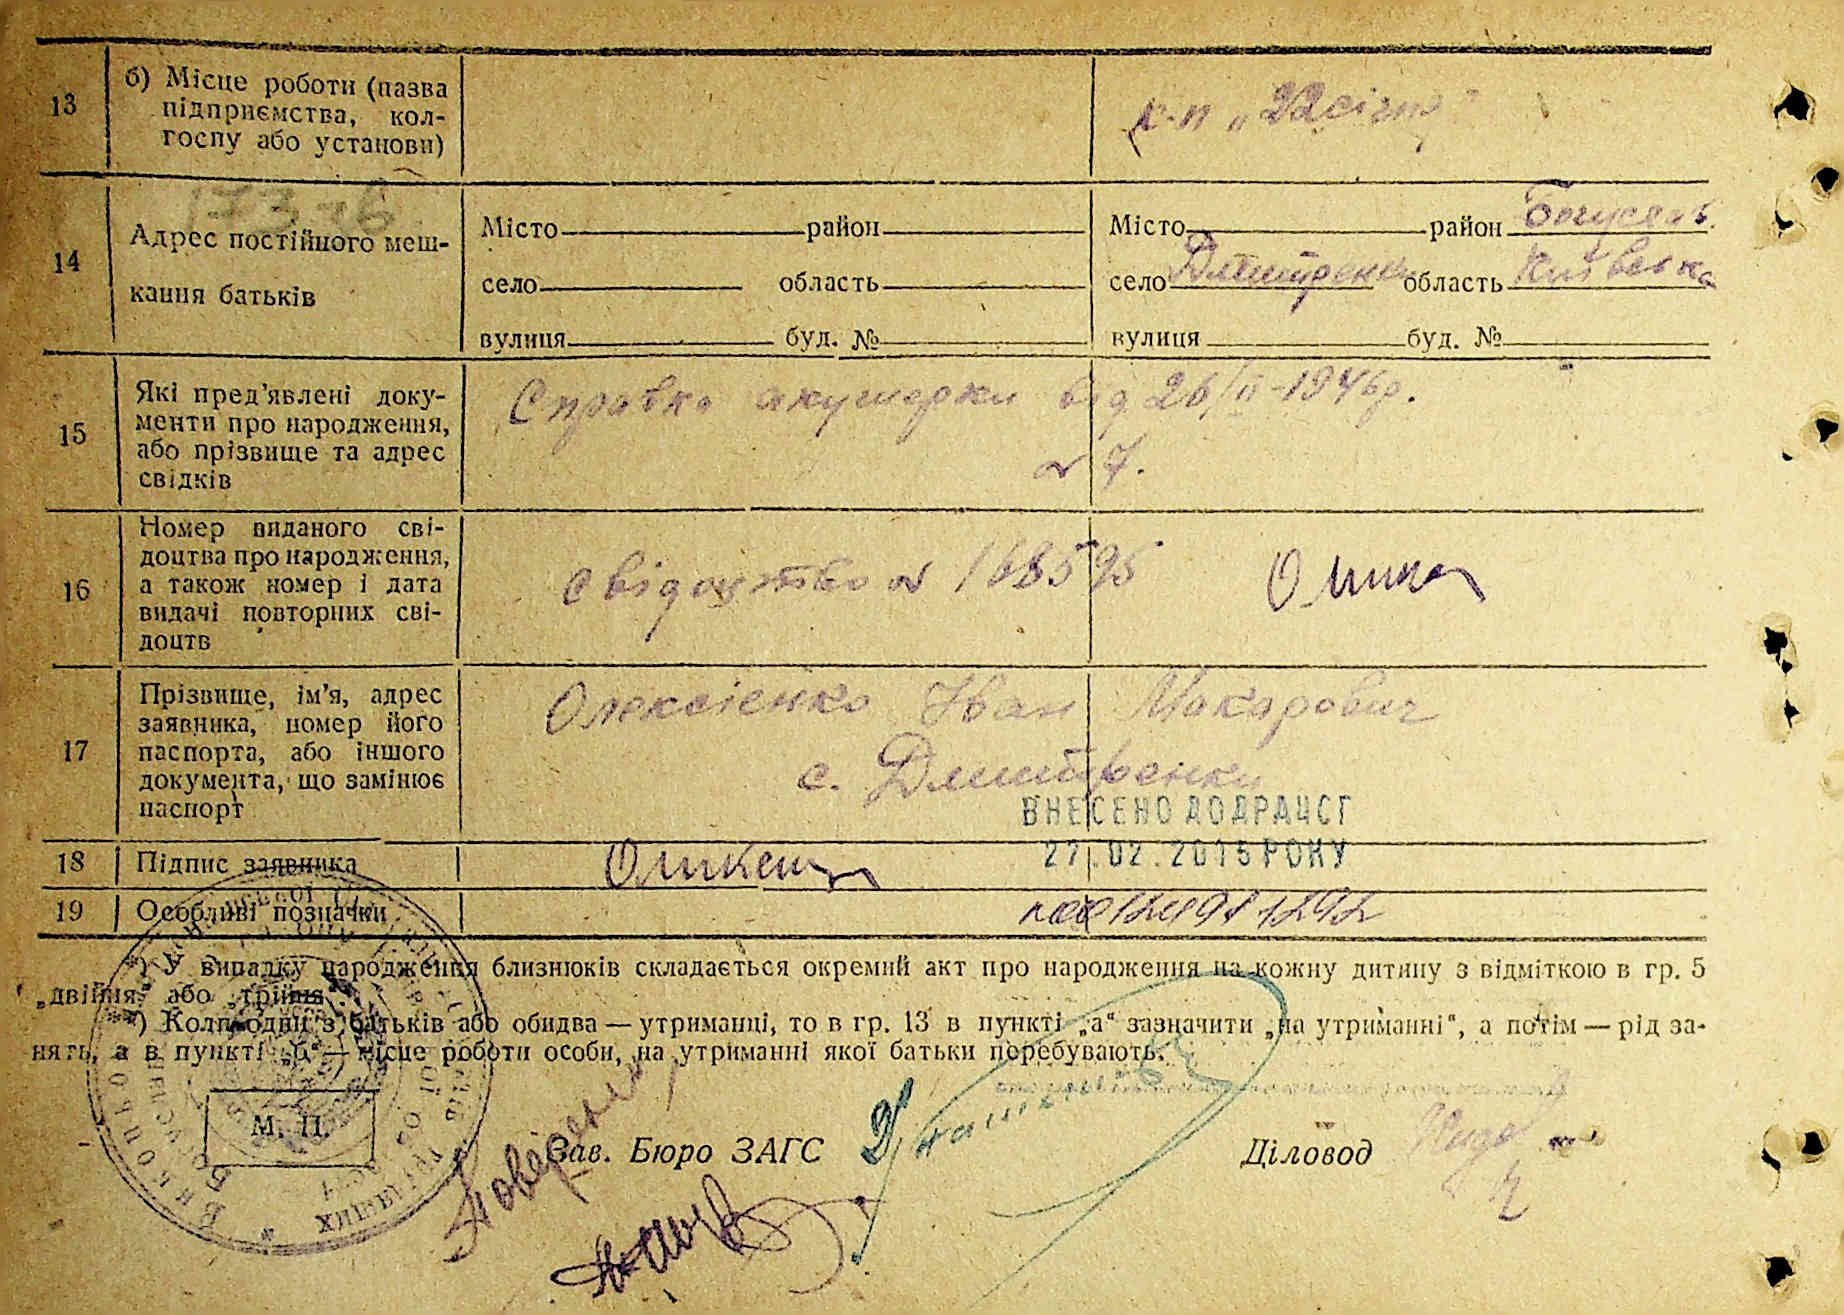 13
б) Місце роботи (назва
підприємства, кол-
госпу або установи)
к-п „22 січня"
173-б
14
Адрес постійного меш-
кання батьків
Місто район
село область
вулиця буд. №
Місто район Богуслав.
село Дмитренки область Київська
вулиця буд. №
15
Які пред'явлені доку-
менти про народження,
або прізвище та адрес
свідків
Справка акушерки від 26/II-1946р.
№ 7.
16
Номер виданого сві-
доцтва про народження,
а також номер і дата
видачі повторних сві-
доцтв
свідоцтво № 168595
17
Прізвище, ім'я, адрес
заявника, номер його
паспорта, або іншого
документа, що замінює
паспорт
Олексієнко Іван Макарович
с. Дмитренки
ВНЕСЕНО ДО ДРАЦСГ
27.02.2015 РОКУ
18
Підпис заявника
19
Особливі позначки
*) У випадку народження близнюків складається окремий акт про народження на кожну дитину з відміткою в гр. 5
„двійня" або „трійня".
**) Коли один з батьків або обидва — утриманці, то в гр. 13 в пункті „а" зазначити „на утриманні", а потім — рід за-
нять, а в пункті „б" — місце роботи особи, на утриманні якої батьки перебувають.
М. П.
Зав. Бюро ЗАГС
Діловод